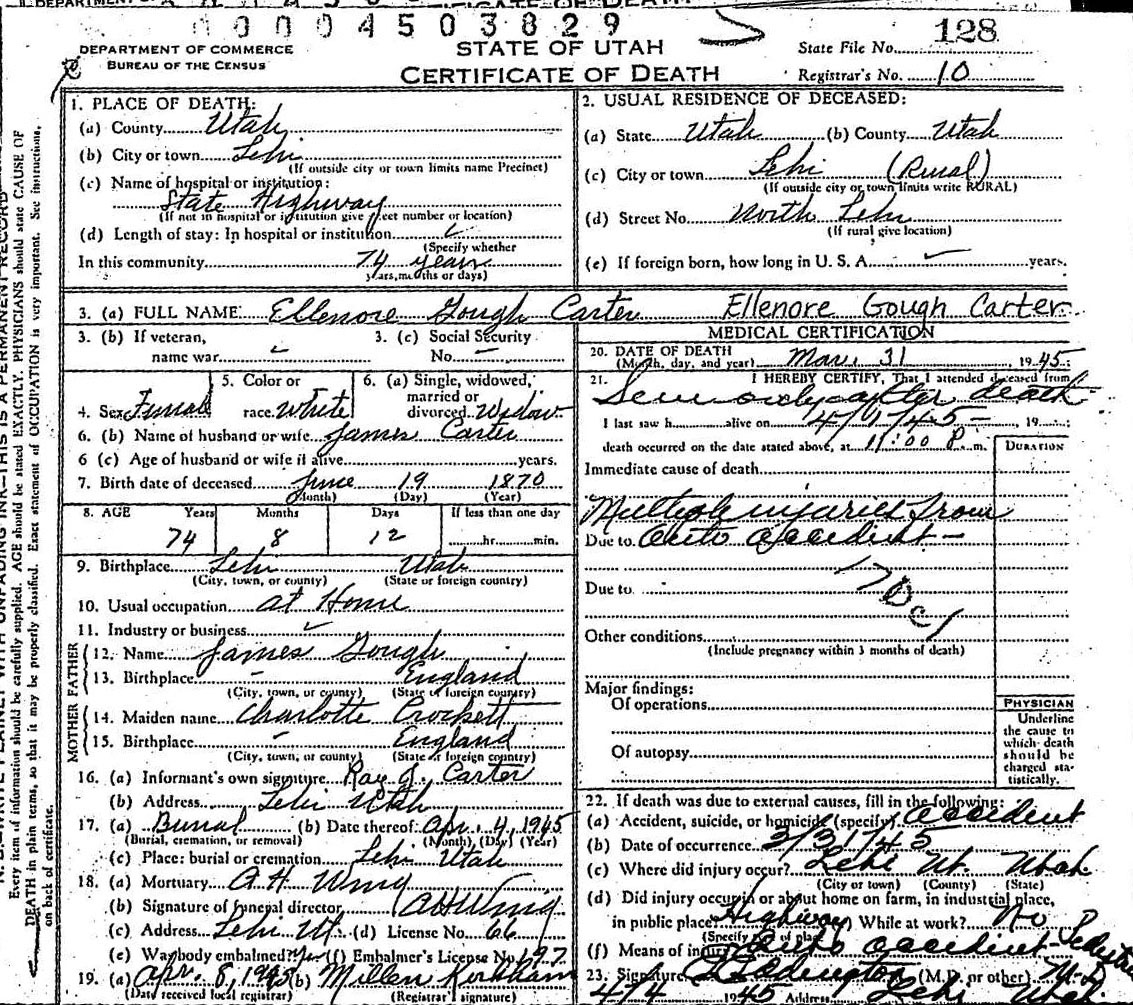 0004503829
DEPARTMENT OF COMMERCE
BUREAU OF THE CENSUS
STATE OF UTAH
CERTIFICATE OF DEATH
State File No. 128
Registrar's No. 10
1. PLACE OF DEATH:
(a) County Utah
(b) City or town Lehi
(If outside city or town limits name Precinct)
(c) Name of hospital or institution:
State Highway
(If not in hospital or institution give street number or location)
(d) Length of stay: In hospital or institution
(Specify whether
In this community 74 years
years, months or days)
2. USUAL RESIDENCE OF DECEASED:
(a) State Utah (b) County Utah
(c) City or town Lehi (Rural)
(If outside city or town limits write RURAL)
(d) Street No. North Lehi
(If rural give location)
(e) If foreign born, how long in U. S. A. years.
3. (a) FULL NAME: Ellenore Gough Carter Ellenore Gough Carter
3. (b) If veteran,
name war
3. (c) Social Security
No. –
4. Sex Female
5. Color or
race White
6. (a) Single, widowed,
married or
divorced Widow
6. (b) Name of husband or wife James Carter
6 (c) Age of husband or wife if alive years.
7. Birth date of deceased June 19 1870
(Month) (Day) (Year)
8. AGE Years Months Days If less than one day
74 8 12 hr. min.
9. Birthplace Lehi Utah
(City, town, or county) (State or foreign country)
10. Usual occupation at Home
11. Industry or business
FATHER
12. Name James Gough
13. Birthplace – England
(City, town, or county) (State or foreign country)
MOTHER
14. Maiden name Charlotte Crockett
15. Birthplace – England
(City, town, or county) (State or foreign country)
16. (a) Informant's own signature Ray J. Carter
(b) Address Lehi Utah
17. (a) Burial (b) Date thereof Apr. 4, 1945
(Burial, cremation, or removal) (Month) (Day) (Year)
(c) Place: burial or cremation Lehi Utah
18. (a) Mortuary A H Wing
(b) Signature of funeral director A H Wing
(c) Address Lehi Ut. (d) License No. 66
(e) Was body embalmed? Yes (f) Embalmer's License No. 197
19. (a) Apr. 8, 1945 (b) Millen Kirkham
(Date received local registrar) (Registrar's signature)
MEDICAL CERTIFICATION
20. DATE OF DEATH
(Month, day, and year) Mar. 31 1945
21. I HEREBY CERTIFY, That I attended deceased from
after death
I last saw h alive on 4/1/45 19
death occurred on the date stated above, at 11:00 P. m.
DURATION
Immediate cause of death
Multiple injuries from
Due to auto accident –
Due to
Other conditions
(Include pregnancy within 3 months of death)
Major findings:
Of operations
Of autopsy
PHYSICIAN
Underline
the cause to
which death
should be
charged sta-
tistically.
22. If death was due to external causes, fill in the following:
(a) Accident, suicide, or homicide (specify) Accident
(b) Date of occurrence 3/31/45
(c) Where did injury occur? Lehi Ut. Utah
(City or town) (County) (State)
(d) Did injury occur in or about home on farm, in industrial place,
in public place? Highway While at work? No
(Specify type of place)
(f) Means of injury Auto accident –
23. Signature Eddington (M.D. or other) M.D.
4/4 1945 Address Lehi Utah
Every item of information should be carefully supplied. AGE should be stated EXACTLY. PHYSICIANS should state CAUSE OF
DEATH in plain terms, so that it may be properly classified. Exact statement of OCCUPATION is very important. See instructions
on back of certificate.